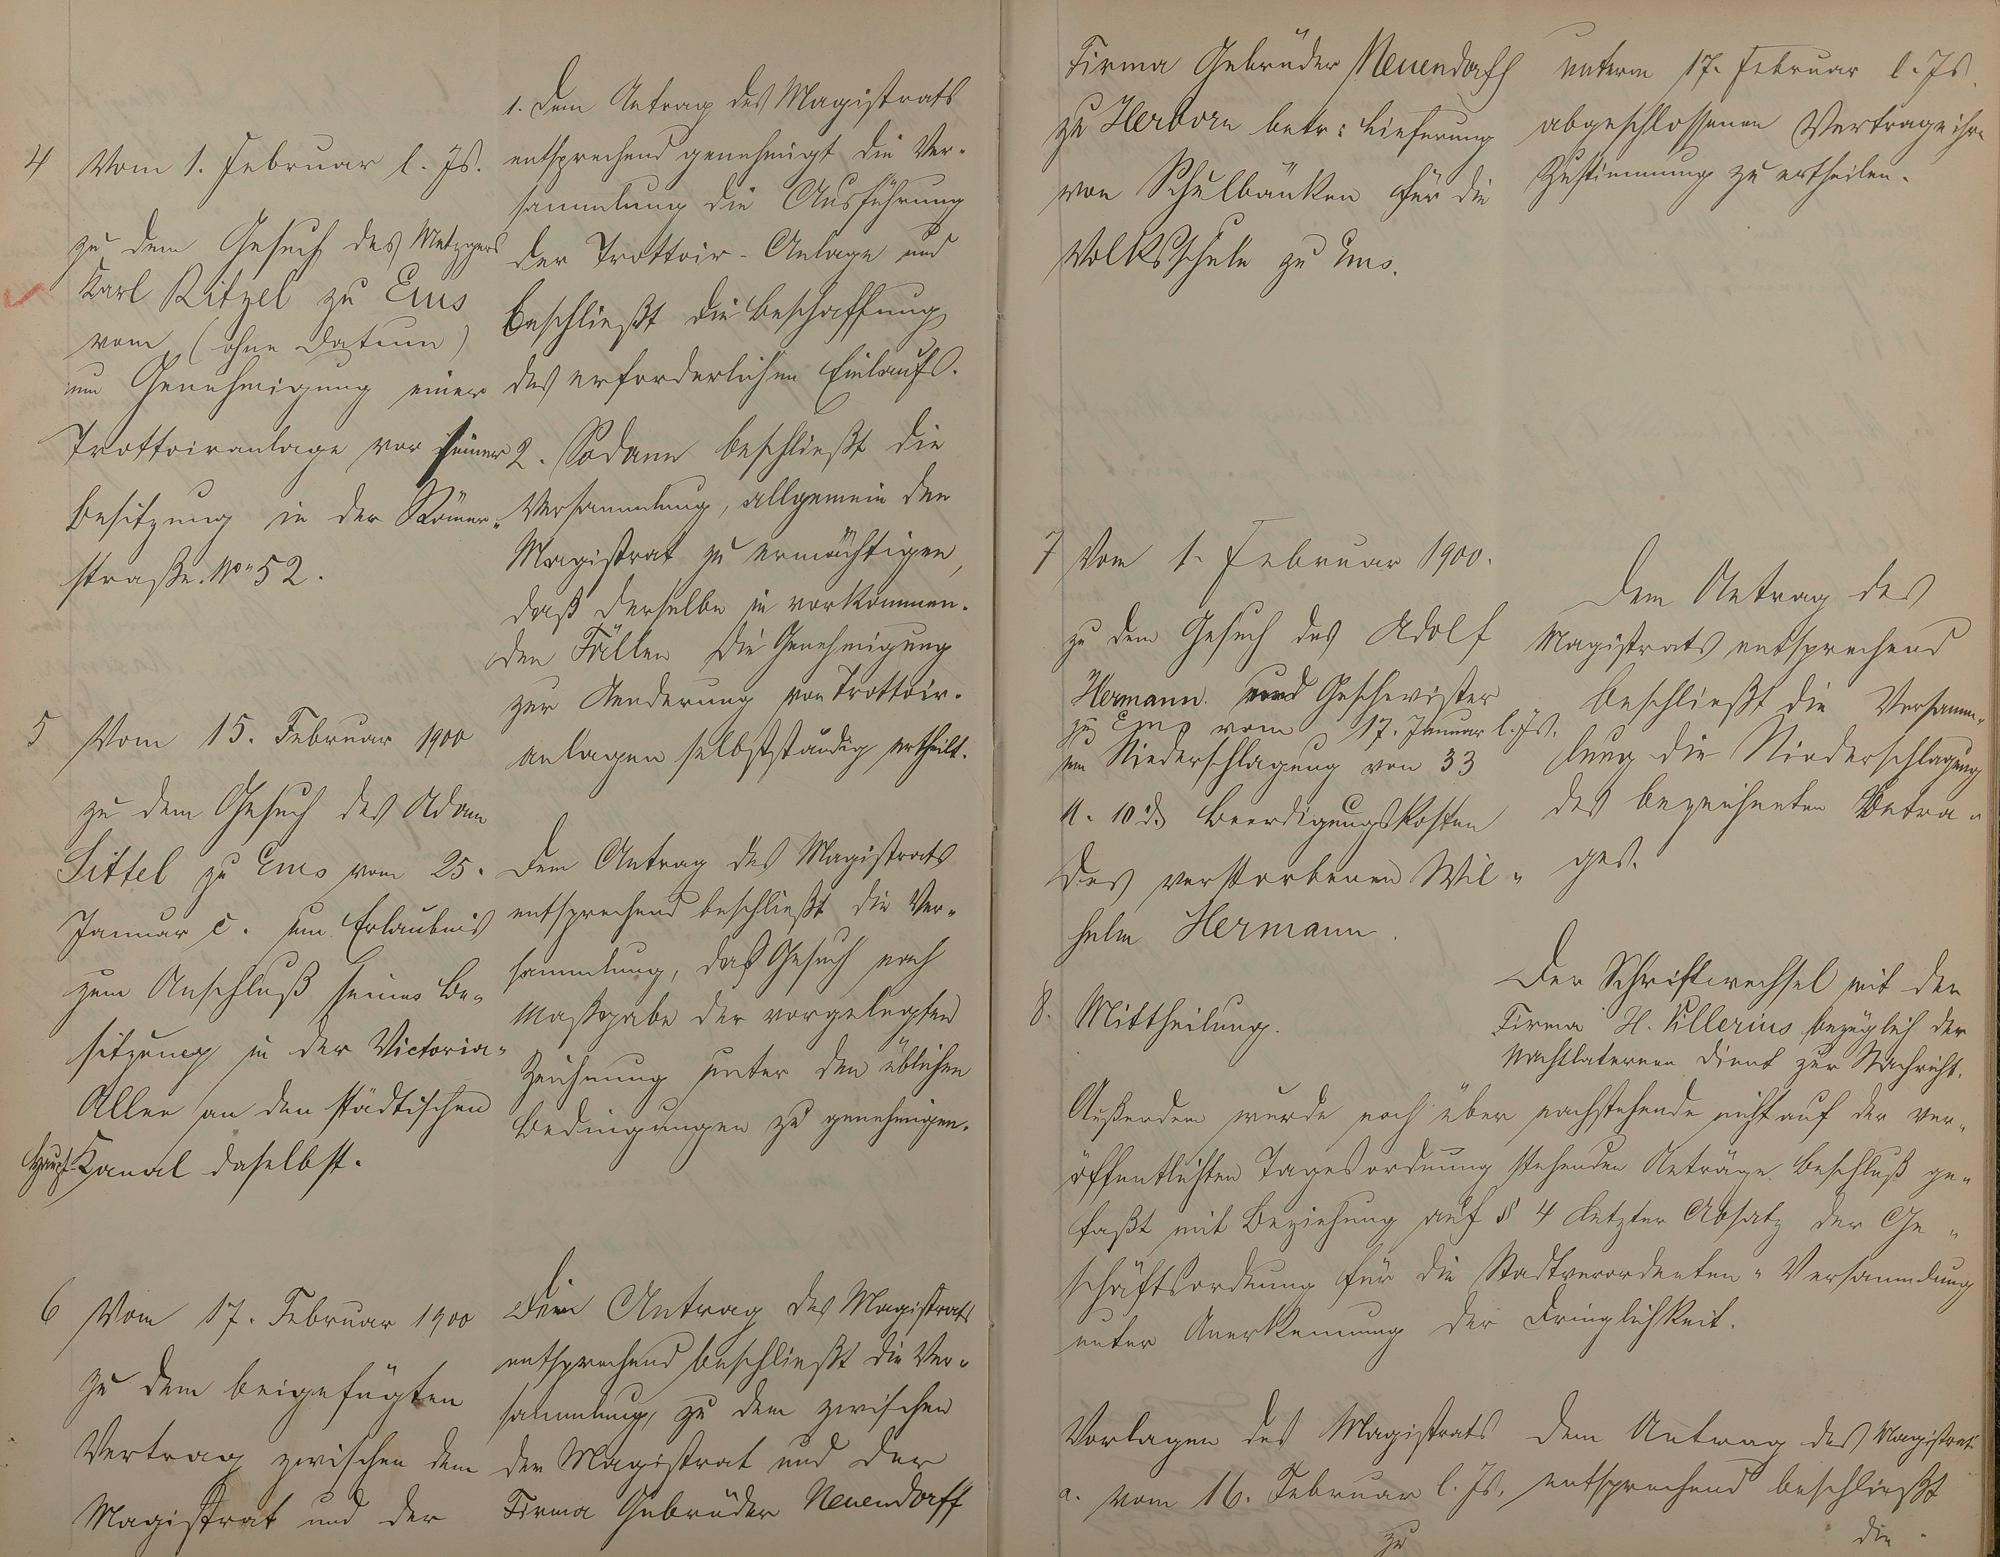 4 Vom 1. Februar l. Js.
zu dem Gesuch des Metzgers
Karl Ritzel zu Ems
vom (ohne Datum)
um Genehmigung einer
Trottoiranlage vor seiner
Besitzung in der Römer-
straße No 52.
1. Dem Antrag des Magistrats
entsprechend genehmigt die Ver-
sammlung die Ausführung
der Trottoir-Anlage und
beschließt die Beschaffung
des erforderlichen Einlaufs.
2. Sodann beschließt die
Versammlung, allgemein den
Magistrat zu ermächtigen,
daß derselbe in vorkommen-
den Fällen die Genehmigung
zur Aenderung von Trottoir-
anlagen selbstständig ertheilt.
5 Vom 15. Februar 1900
zu dem Gesuch des Adam
Sittel zu Ems vom 25.
Januar c. um Erlaubnis
zum Anschluß seines Be-
sitzung in der Victoria-
Allee an den städtischen
Haupt-Kanal daselbst.
Dem Antrag des Magistrats
entsprechend beschließt die Ver-
sammlung, das Gesuch nach
Maßgabe der vorgelegten
Zeichnung unter den üblichen
Bedingungen zu genehmigen.
6 Vom 17. Februar 1900
zu dem beigefügten
Vertrag zwischen dem
Magistrat und der
Dem Antrag des Magistrats
entsprechend beschließt die Ver-
sammlung, zu dem zwischen
dem Magistrat und der
Firma Gebrüder Neuendorff
Firma Gebrüder Neuendorff
zu Herborn betr: Lieferung
von Schulbänken für die
Volksschule zu Ems.
unterm 17. Februar l. Js.
abgeschlossenen Vertrage ihre
Zustimmung zu ertheilen.
7 Vom 1. Februar 1900.
zu dem Gesuch des Adolf
Hermann und Geschwister
zu Ems vom 17. Januar l. Js.
um Niederschlagung von 33
M. 10 d. Beerdigungskosten
des verstorbenen Wil-
helm Hermann.
Dem Antrag des
Magistrats entsprechend
beschließt die Versamm-
lung die Niederschlagung
des bezeichneten Betra-
ges.
8. Mittheilung.
Der Schriftwechsel mit der
Firma H. Killerius bezüglich der
Nachtlaternen dient zur Nachricht.
Außerdem wurde noch über nachstehende nicht auf der ver-
öffentlichten Tagesordnung stehenden Anträge Beschluß ge-
faßt mit Beziehung auf § 4 letzter Absatz der Ge-
schäftsordnung für die Stadtverordneten-Versammlung
unter Anerkennung der Dringlichkeit.
Vorlagen des Magistrats
a. vom 16. Februar l. Js.
zu
Dem Antrag des Magistrats
entsprechend beschließt
die